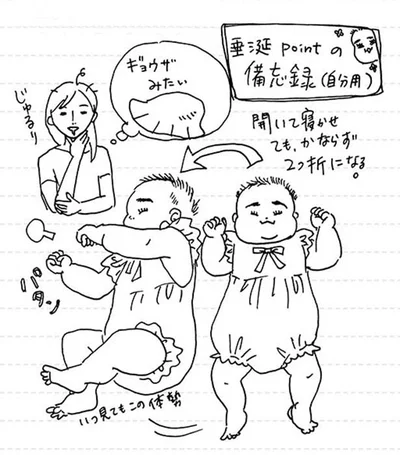 垂涎pointの
備忘録(自分用)
ギョウザ
みたい
じゅるり
開いて寝かせ
ても、かならず
2つ折になる。
パタン
いつ見てもこの体勢